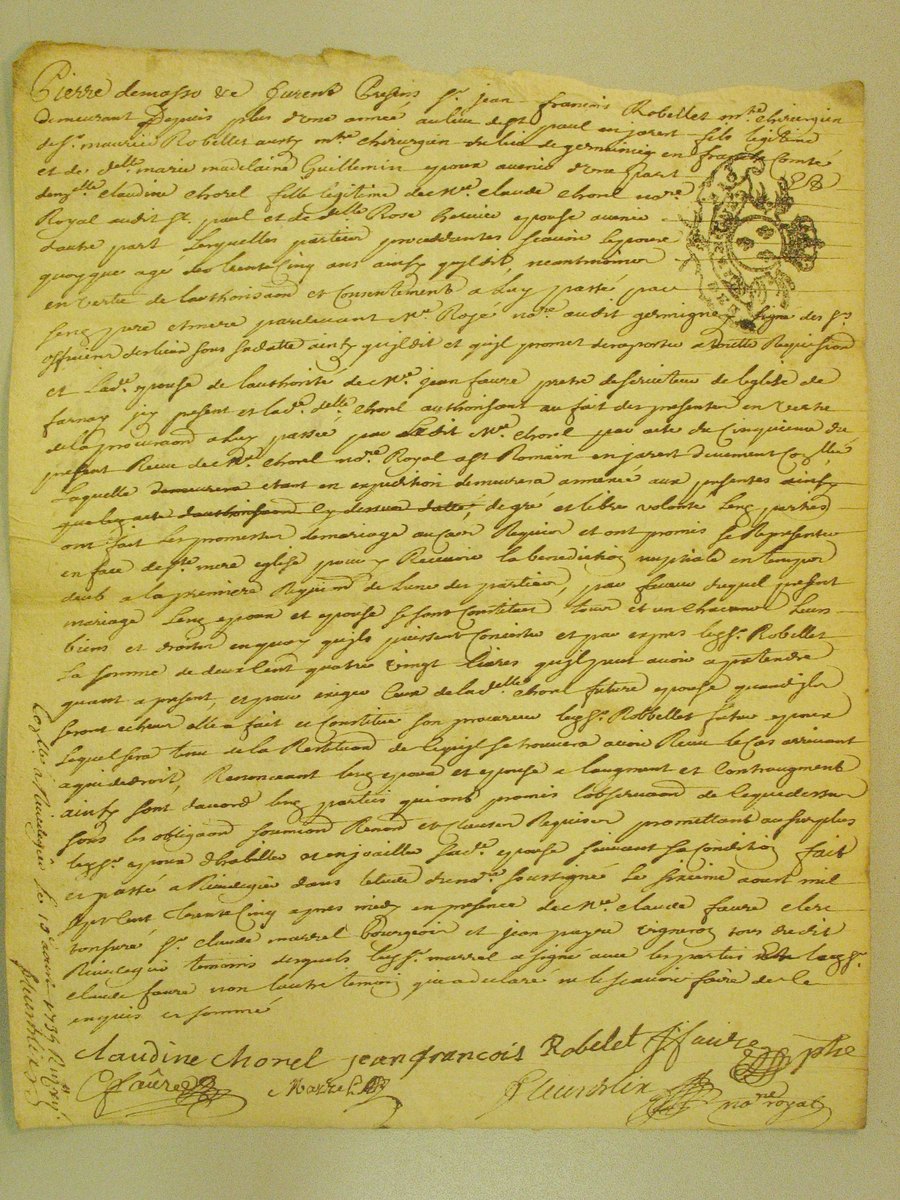 Pierre demasso &c furent presens Sr. jean francois Robellet mtre chirurgien
demeurant depuis plus d'une année au lieu de st paul en jarest fils légitime
de sr. maurice Robellet aussy mtre chirurgien du lieu de germiney en franche Comté
et de dlle. marie madelaine Guillemin epoux avenir d'une part
demlle Claudine Chorel fille légitime de Me. Claude Chorel nore
Royal audit st. paul et de dlle Rose epouse avenir
d'autre part Lesquelles parties procedantes scavoir lepoux
quoyque agé de trente Cinq ans ainsy quil dit, neantmoins
en vertu de lauthorisaon et Consentement a luy passé par
pere et mere pardevant Me. Roze nore audit germigney signé des srs
officiers du lieu sous sa datte ainsy quil dit et quil promet de raporter a toutte Requisition
et lade. epouse de l'authorité de Me. jean faure pretre desserviteur de leglise de
farnay icy present et lade. dlle. Chorel authorisant au fait des presentes en vertu
de la procuraon a luy passée par ledit Me. Chorel par acte du Cinquieme du
present Receu de Me. Chorel nore Royal a st Romain en jarest duement Collé
Laquelle demeurera etant en expedition demeurera annéxée aux presentes ainsy
que lacte dauthorisaon cy dessus datté, de gré et libre volonté parties
ont fait Les promesses de mariage au Cas Requises et ont promis se Representer
en face de ste. mere eglise pour y Recevoir la benediction nuptiale en temps
deub a la premiere Requisitn. de lune des parties, par faveur duquel present
mariage epoux et epouse se sont Constitués tous et un chacuns Leurs
biens et droits en quoy quils puissent Consister et par exprès sr. Robellet
la somme de deux Cent quatre vingt livres quil peut avoir a pretendre
quant a present, et pour exiger ceux de lade dlle. Chorel future epouse quand ils
seront echeus elle a fait et Constitué son procureur sr. Robbellet futur epoux
Lequel sera tenu de la Restituaon de ce quil se trouvera avoir Receu le Cas arrivant
a qui de droit, Renoncant epoux et epouse a laugment et Contraugment
ainsy sont d'accord parties qui ont promis l'observaon de ce que dessus
sous les obligaons soumions Renons et Clauses Requises promettant au surplus
sr. epoux dhabiller et enjoailler sade. epouse suivant sa Condition fait
et passé a Rivedegier dans letude du nore soussigné Le sixieme aoust mil
sept Cent trente Cinq apres midy en presence de Me. Claude faure clerc
tonsuré sr. Claude marrel bourgeois et jean vigneron tous dudit
Rivedegier temoins desquels sr. marrel a signé avec les parties et sr.
Claude faure non l'autre temoin qui a declaré ne le scavoir faire de ce
enquis et sommé
Claudine Chorel jeanfrancois Robelet jffaure ptre
Cffaûre Marrel fleurdelix nore royal
Collé a Rivedegier le 15e 1735
fleurdelix